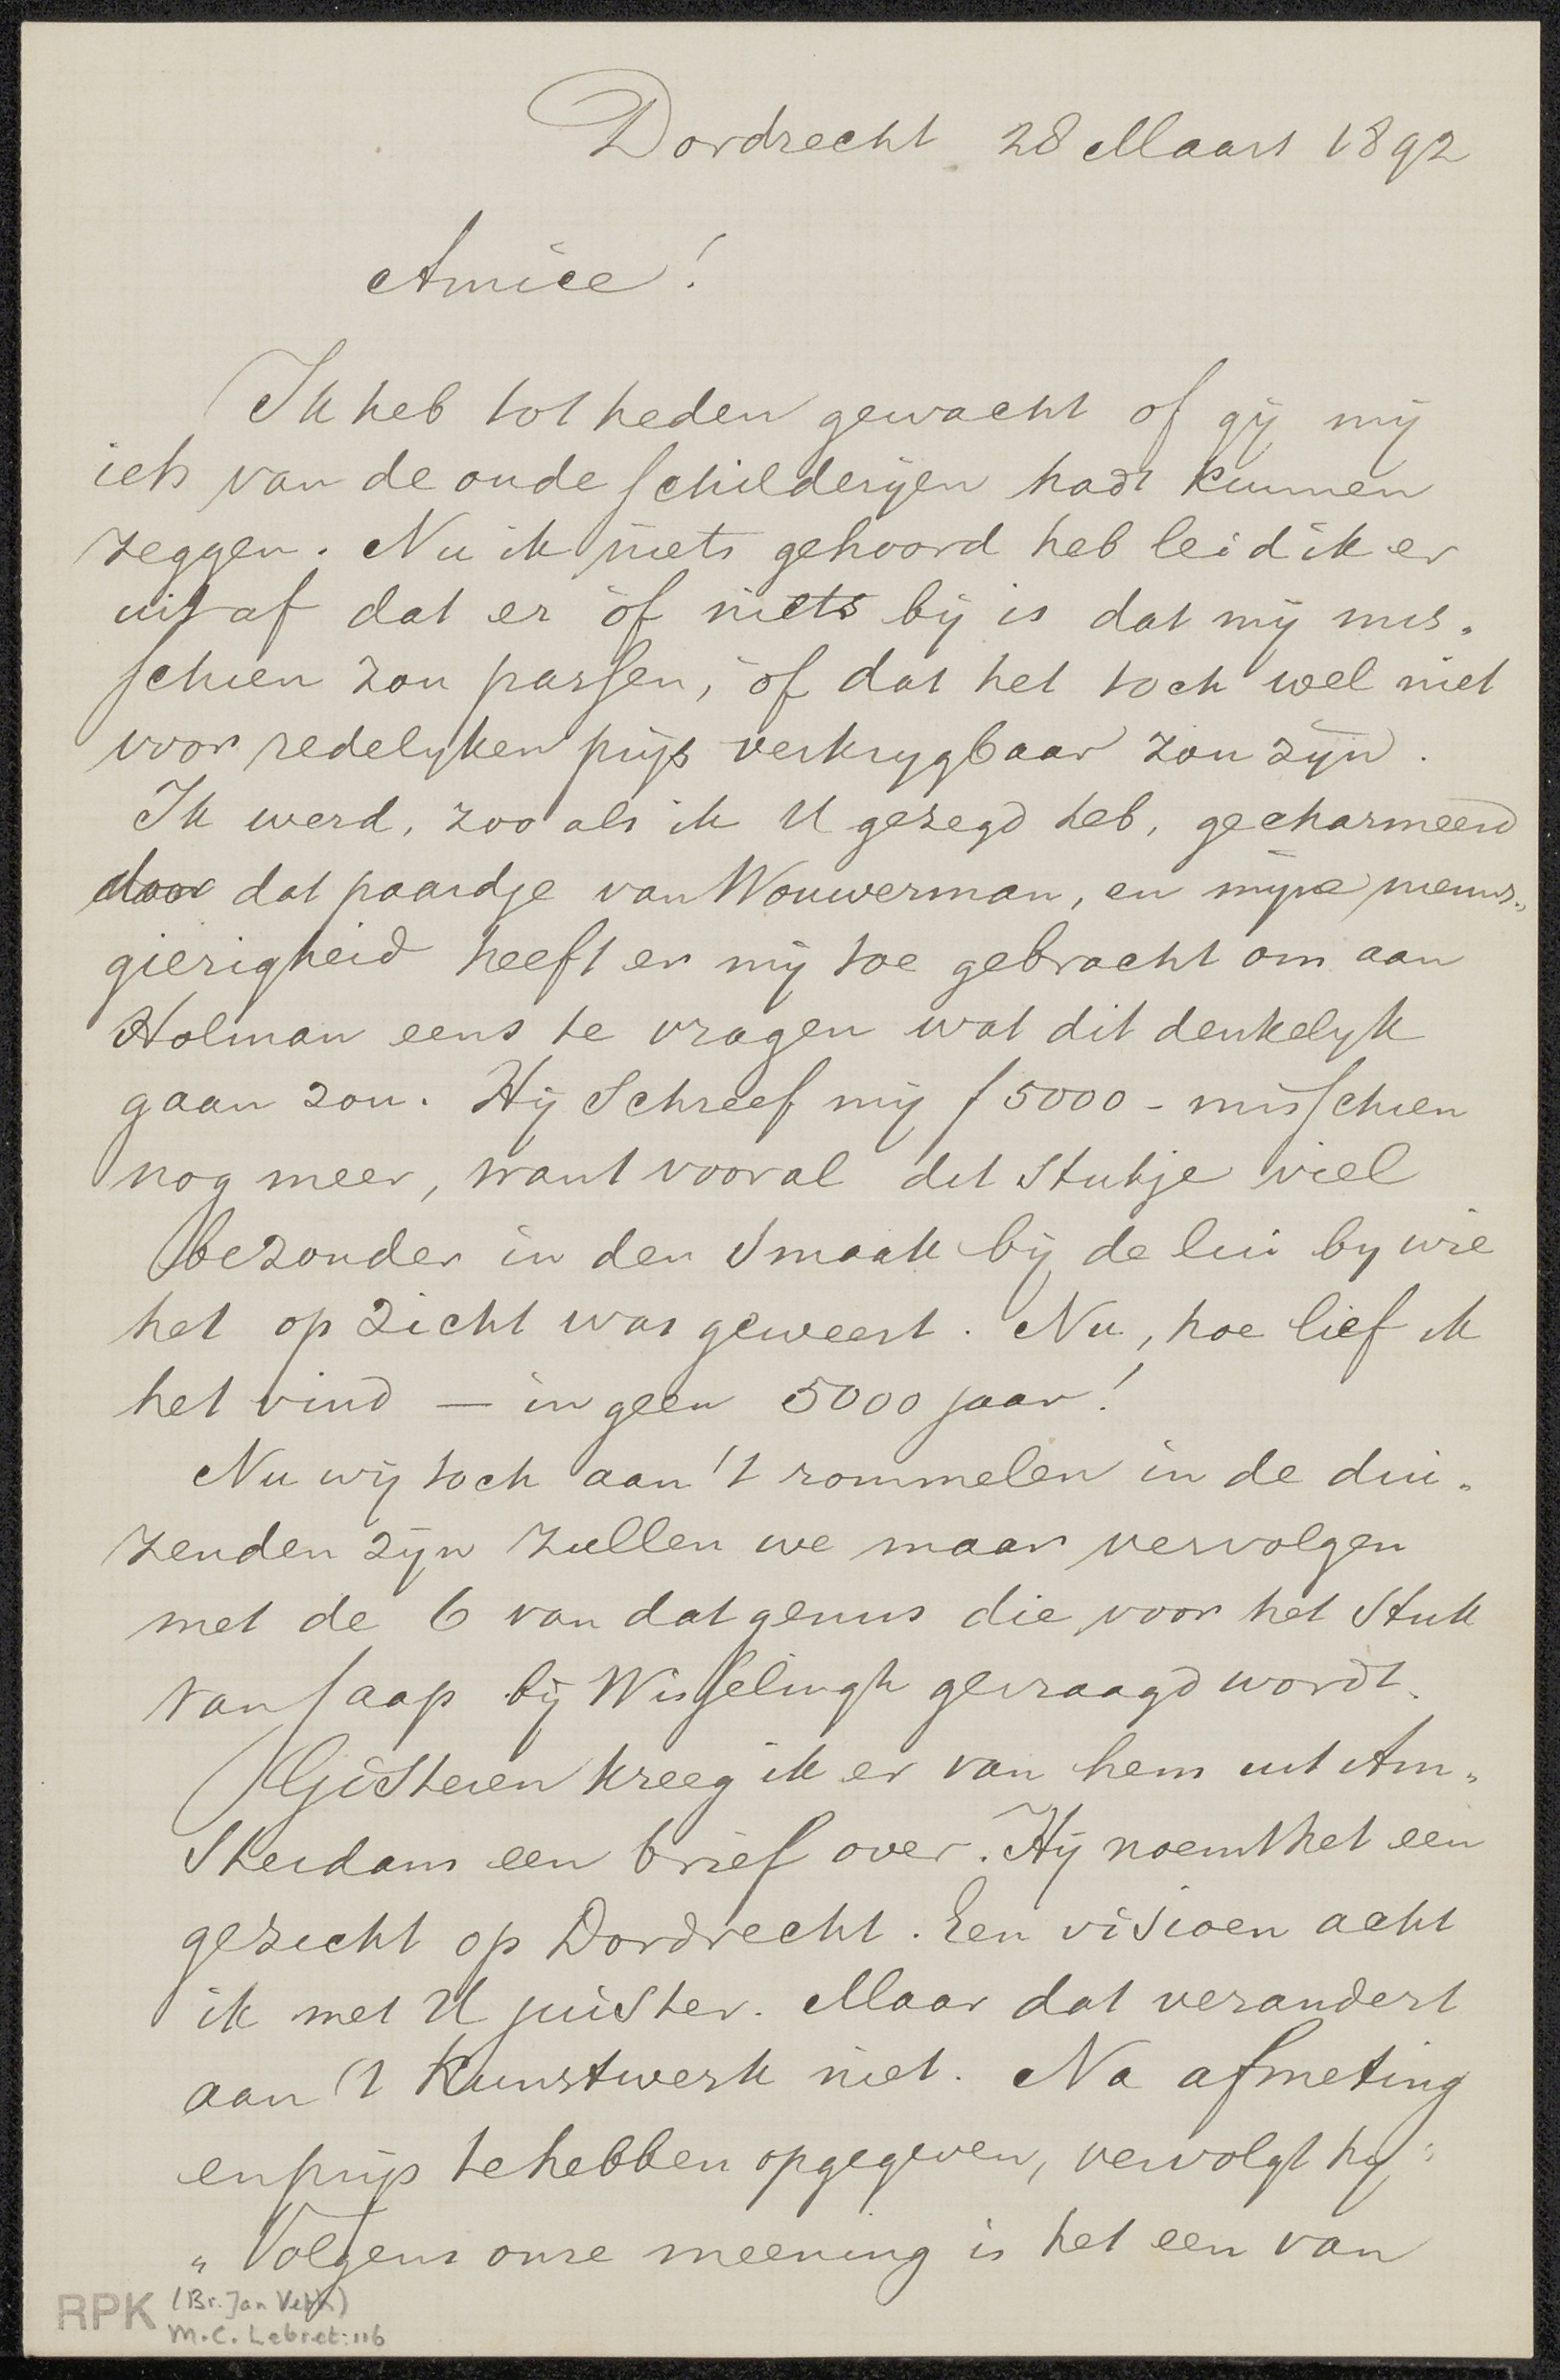 Dordrecht 28 Maart 1892
Amice!
Ik heb tot heden gewacht of gij mij
iets van de oude schilderijen hadt kunnen
zeggen. Nu ik niets gehoord heb leid ik er
uit af dat er òf niets bij is dat mij mis„
schien zou passen, òf dat het toch wel niet
voor redelijken prijs verkrygbaar zou zijn.
Ik werd, zoo als ik U gezegd heb, gecharmeerd
door dat paardje van Wouwerman, en mijne nieuws„
gierigheid heeft er mij toe gebracht om aan
Holman eens te vragen wat dit denkelyk
gaan zou. Hij schreef mij ƒ 5000 - misschien
nog meer, want vooral dit stukje viel
bezonder in den smaak bij de lui by wie
het op zicht was geweest. Nu, hoe lief ik
het vind — in geen 5000 jaar!
Nu wij toch aan 't rommelen in de dui„
zenden zijn zullen we maar vervolgen
met de 6 van dat genus die voor het stuk
van Jaap bij Wisselingh gevraagd wordt.
Gisteren kreeg ik er van hem uit Am„
sterdam een brief over. Hij noemt het een
gezicht op Dordrecht. Een visioen acht
ik met U juister. Maar dat verandert
aan 't kunstwerk niet. Na afmeting
en prijs te hebben opgegeven, vervolgt hij:
„Volgens onze meening is het een van
RPK (Br. Jan Veth)
M.C. Lebret: 116